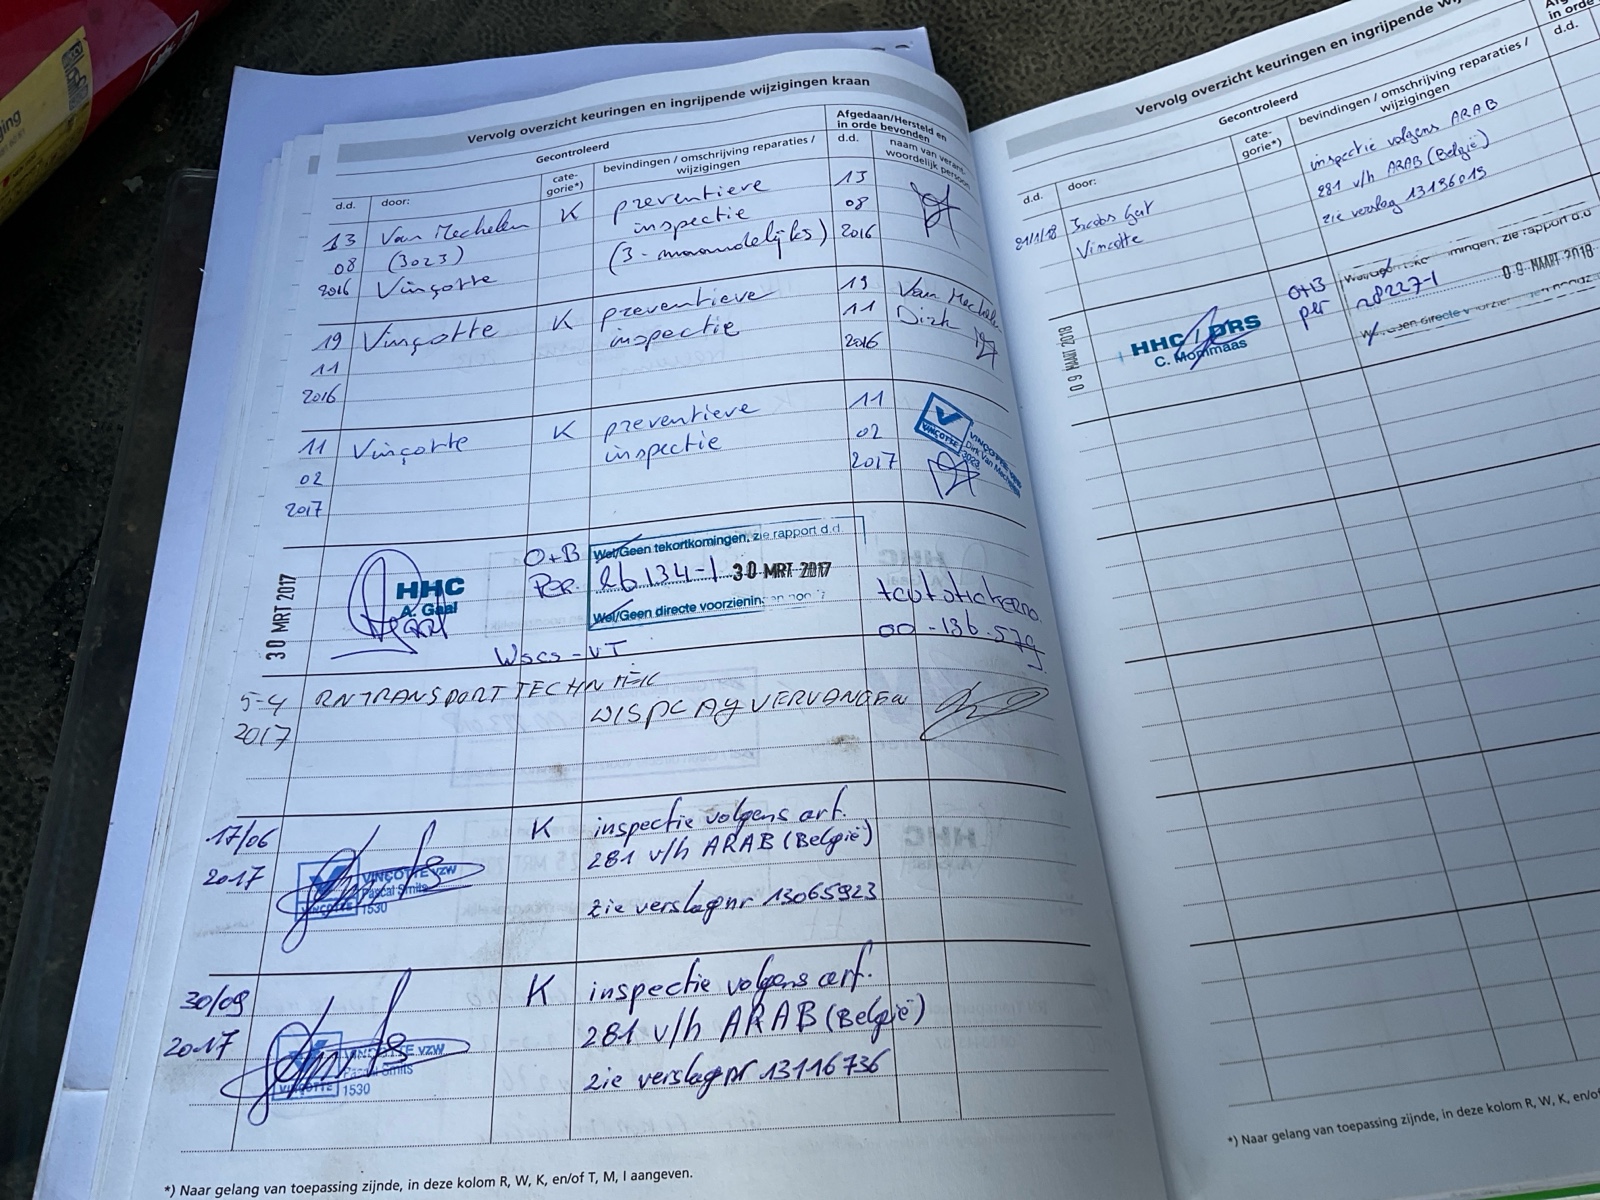 Vervolg overzicht keuringen en ingrijpende wijzigingen kraan
Gecontroleerd
Afgedaan/Hersteld en
in orde bevonden
d.d.
door:
cate-
gorie*)
bevindingen / omschrijving reparaties /
wijzigingen
d.d.
naam van verant-
woordelijk persoon
13
08
2016
Van Mechelen
(3023)
Vinçotte
K
preventieve
inspectie
(3-maandelijks)
13
08
2016
19
11
2016
Vinçotte
K
preventieve
inspectie
19
11
2016
Van Mechelen
Dirk
11
02
2017
Vinçotte
K
preventieve
inspectie
11
02
2017
VINÇOTTE
VINÇOTTE
Dirk Van Mechelen
3023
30 MRT 2017
HHC
A. Gaal
O+B
Per.
Wel/Geen tekortkomingen, zie rapport d.d.
26134-1 30 MRT 2017
Wel/Geen directe voorzieningen
tcvt stickerno.
00-136.579
Wscs-VT
5-4
2017
RN TRANSPORT TECHNIEK
DISPLAY VERVANGEN
17/06
2017
VINÇOTTE VZW
Pascal Smits
VINÇOTTE 1530
K
inspectie volgens art.
281 v/h ARAB (België)
zie verslagnr 13065923
30/09
2017
VINÇOTTE VZW
Pascal Smits
VINÇOTTE 1530
K
inspectie volgens art.
281 v/h ARAB (België)
zie verslagnr 13116736
*) Naar gelang van toepassing zijnde, in deze kolom R, W, K, en/of T, M, I aangeven.
Vervolg overzicht keuringen en ingrijpende
Gecontroleerd
in orde
d.d.
door:
cate-
gorie*)
bevindingen / omschrijving reparaties /
wijzigingen
d.d.
Jacobs Gert
Vincotte
inspectie volgens ARAB
281 v/h ARAB (België)
zie verslag 13136019
09 MAART 2018
HHC / DRS
C. Mommaas
O+B
per
zie rapport d.d.
28227-1 09 MAART 2018
directe
*) Naar gelang van toepassing zijnde, in deze kolom R, W, K, en/of